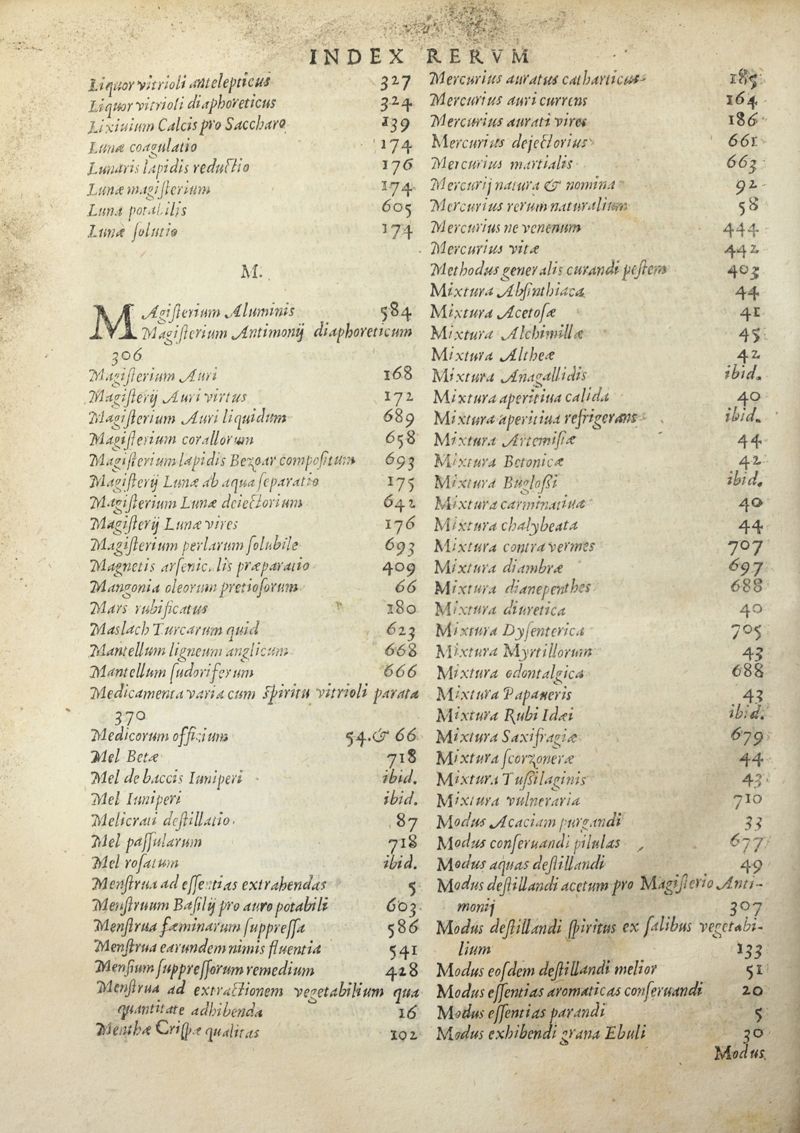 INDEX RERVM
Liquor vitrioli antelepticus 327
Liquor vitrioli diaphoreticus 324
Lixiuium Calcis pro Saccharo 139
Lunæ coagulatio 174
Lunaris lapidis reductio 176
Lunæ magisterium 174
Luna potabilis 605
Lunæ solutio 174
M.
MAgisterium Aluminis 584
Magisterium Antimonij diaphoreticum
306
Magisterium Auri 168
Magisterij Auri virtus 172
Magisterium Auri liquidum 689
Magisterium corallorum 658
Magisterium lapidis Bezoar compositum 693
Magisterij Lunæ ab aqua separatio 175
Magisterium Lunæ deiectorium 642
Magisterij Lunæ vires 176
Magisterium perlarum solubile 693
Magnetis arsenicalis præparatio 409
Mangonia oleorum pretiosorum 66
Mars rubificatus 180
Maslach Turcarum quid 623
Mantellum ligneum anglicum 668
Mantellum sudoriferum 666
Medicamenta varia cum Spiritu vitrioli parata
370
Medicorum officium 54.& 66
Mel Betæ 718
Mel de baccis Iuniperi ibid.
Mel Iuniperi ibid.
Melicrati destillatio. 87
Mel passularum 718
Mel rosatum ibid.
Menstrua ad essentias extrahendas 5
Menstruum Basilij pro auro potabili 603
Menstrua fæminarum suppressa 586
Menstrua earundem nimis fluentia 541
Mensium suppressorum remedium 428
Menstrua ad extractionem vegetabilium qua
quantitate adhibenda 16
Menthæ Crispæ qualitas 102
Mercurius auratus catharticus 185
Mercurius auri currens 164
Mercurius aurati vires 186
Mercurius dejectorius 661
Mercurius martialis 663
Mercurij natura & nomina 92
Mercurius rerum naturalium 58
Mercurius ne venenum 444
Mercurius vitæ 442
Methodus generalis curandi pestem 403
Mixtura Absinthiaca 44
Mixtura Acetosæ 41
Mixtura Alchimillæ 45
Mixtura Altheæ 42
Mixtura Anagallidis ibid.
Mixtura aperitiua calida 40
Mixtura aperitiua refrigerans ibid.
Mixtura Artemisiæ 44
Mixtura Betonicæ 42
Mixtura Buglossi ibid.
Mixtura carminatiua 40
Mixtura chalybeata 44
Mixtura contra vermes 707
Mixtura diambræ 697
Mixtura dianepenthes 688
Mixtura diuretica 40
Mixtura Dysenterica 705
Mixtura Myrtillorum 43
Mixtura odontalgica 688
Mixtura Papaueris 43
Mixtura Rubi Idæi ibid.
Mixtura Saxifragiæ 679
Mixtura scorzoneræ 44
Mixtura Tussilaginis 43
Mixtura vulneraria 710
Modus Acaciam purgandi 33
Modus conseruandi pilulas 677
Modus aquas destillandi 49
Modus destillandi acetum pro Magisterio Anti-
monij 307
Modus destillandi spiritus ex salibus vegetabi-
lium 133
Modus eosdem destillandi melior 51
Modus essentias aromaticas conseruandi 20
Modus essentias parandi 5
Modus exhibendi grana Ebuli 30
Modus